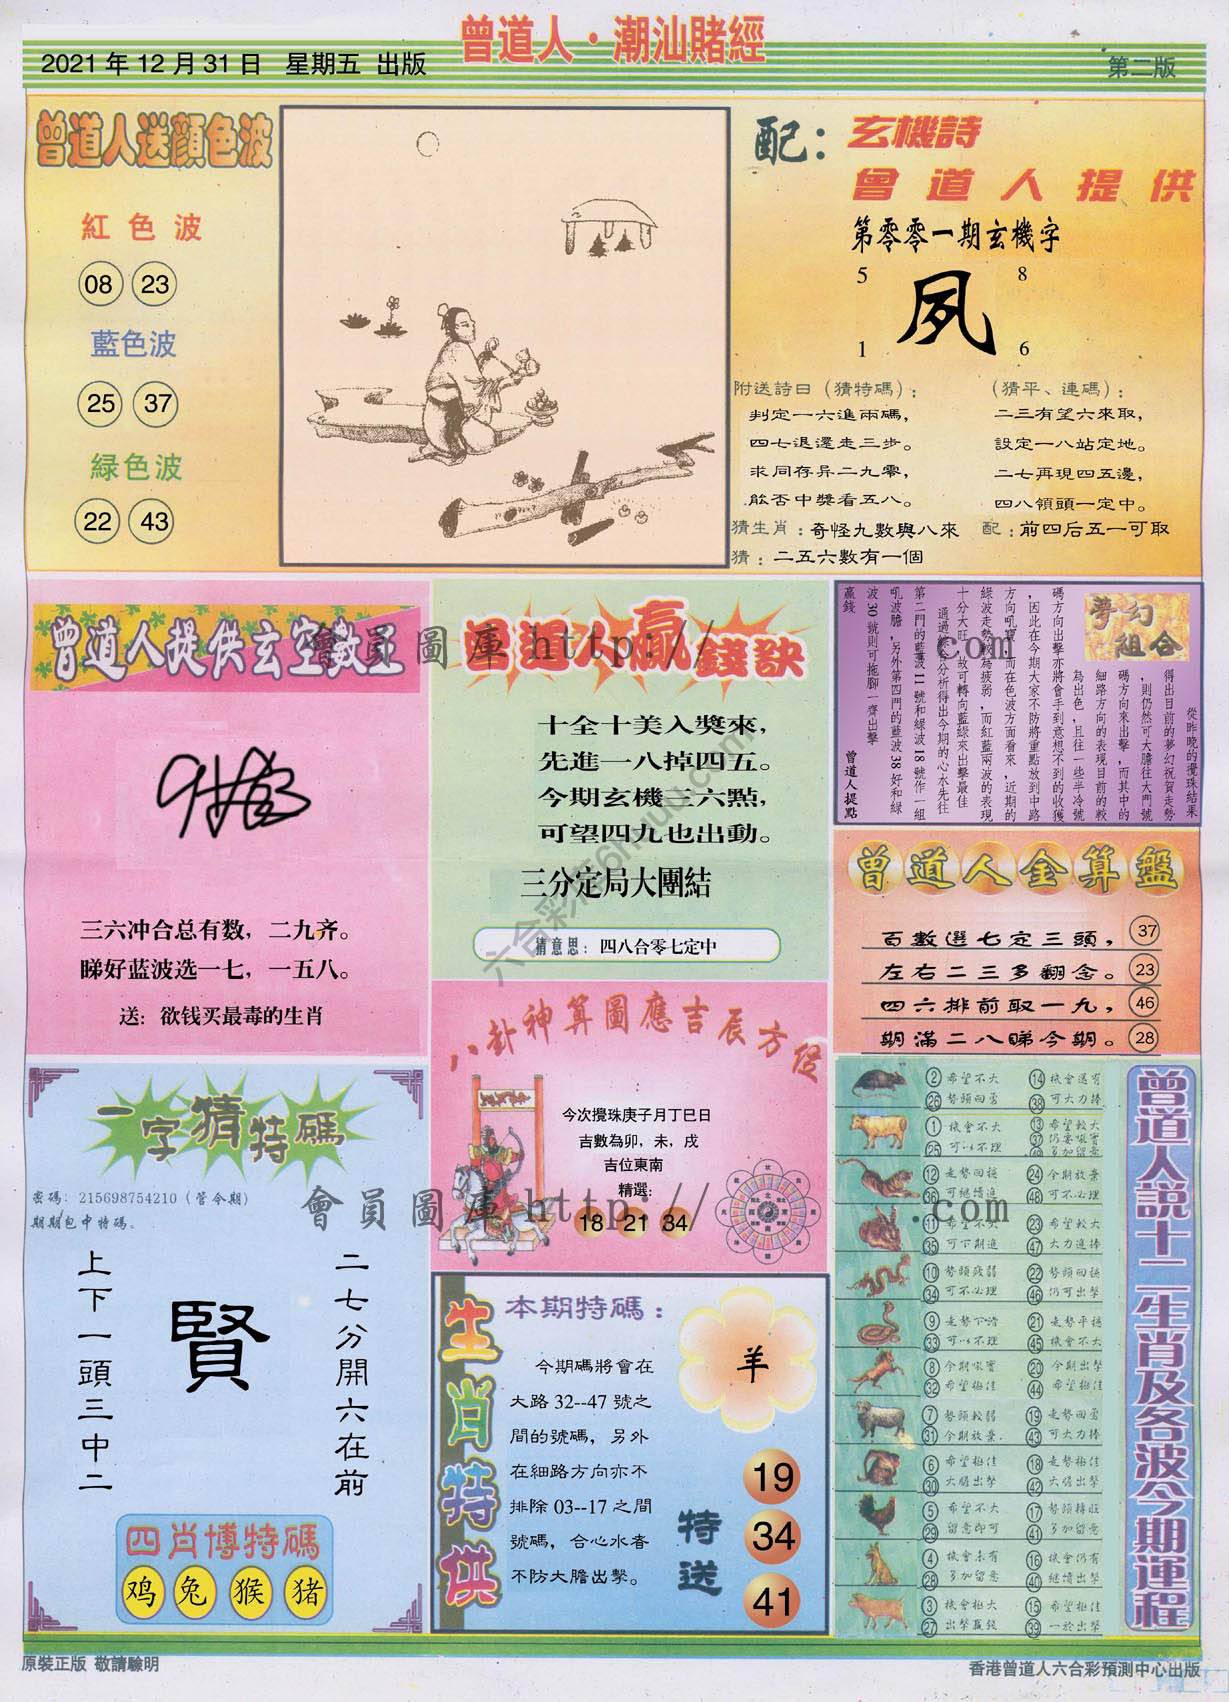 2021 年 12 月 31 日 星期五 出版
曾道人·潮汕賭經
第二版
曾道人送顏色波
紅色波
08 23
藍色波
25 37
緑色波
22 43
配：玄機詩
曾道人提供
第零零一期玄機字
5 8
夙
1 6
附送詩曰（猜特碼）：
判定一六進兩碼，
四七退還走三步。
求同存异二九零，
能否中獎看五八。
（猜平、連碼）：
二三有望六來取，
設定一八站定地。
二七再現四五邊，
四八領頭一定中。
猜生肖：奇怪九數與八來 配：前四后五一可取
猜：二五六數有一個
曾道人提供玄空數王
三六冲合总有数，二九齐。
睇好蓝波选一七，一五八。
送：欲钱买最毒的生肖
曾道人贏錢訣
十全十美入獎來，
先進一八掉四五。
今期玄機三六點，
可望四九也出動。
三分定局大團結
猜意思：四八合零七定中
夢幻組合
從昨晚的攪珠結果
得出目前的夢幻祝賀走勢
，則仍然可大膽往大門號
碼方向來出擊，而其中的
細路方向的表現目前的較
為出色，且往一些半冷號
碼方向出擊亦將會手到意想不到的收獲
，因此在今期大家不防將重點放到中路
方向吼寶，而在色波方面看來，近期的
綠波走勢較為疲弱，而紅藍兩波的表現
十分大旺，故可轉向藍綠來出擊最佳
通過綜合分析得出今期的心水先往
第二門的藍波 11 號和綠波 18 號作一組
吼波膽，另外第四門的藍波 38 好和綠
波 30 號則可拖腳一齊出擊
贏錢
曾道人提點
曾道人金算盤
百數選七定三頭， 37
左右二三多翻念。 23
四六排前取一九， 46
期滿二八睇今期。 28
八卦神算圖應吉辰方位
今次攪珠庚子月丁巳日
吉數為卯，未，戌
吉位東南
精選：
18 21 34
一字猜特碼
密碼：215698754210（管今期）
期期包中特碼。
二七分開六在前
賢
上下一頭三中二
四肖博特碼
鸡 兔 猴 猪
生肖特供
本期特碼：
今期碼將會在
大路 32--47 號之
間的號碼，另外
在細路方向亦不
排除 03--17 之間
號碼，合心水者
不防大膽出擊。
羊
特送
19
34
41
曾道人說十二生肖及各波今期運程
② 希望不大 ⑭ 機會還有
㉖ 勢頭回勇 ㊳ 可大力捧
① 機會不大 ⑬ 希望較大
㉕ 可以不理 ㊲ 仍要吸寶
㊾ 多加留意
⑫ 走勢回穩 ㉔ 今期放棄
㊱ 可繼續進 ㊽ 可不必理
⑪ 希望不大 ㉓ 希望較大
㉟ 可下期進 ㊼ 大力進捧
⑩ 勢頭疲弱 ㉒ 勢頭回穩
㉞ 可不必理 ㊻ 仍可出擊
⑨ 走勢下滑 ㉑ 走勢平穩
㉝ 可以不理 ㊺ 機會不大
⑧ 今期吸寶 ⑳ 今期出擊
㉜ 希望極佳 ㊹ 希望極佳
⑦ 勢頭較弱 ⑲ 走勢回勇
㉛ 今期放棄 ㊸ 可大力捧
⑥ 希望極佳 ⑱ 走勢極佳
㉚ 大膽出擊 ㊷ 大膽出擊
⑤ 希望不大 ⑰ 勢頭轉旺
㉙ 留意即可 ㊶ 多加留意
④ 機會未有 ⑯ 機會仍有
㉘ 多加留意 ㊵ 繼續出擊
③ 機會極大 ⑮ 希望極佳
㉗ 出擊贏錢 ㊴ 一於出擊
會員圖庫 http:// .com
會員圖庫 http:// .com
原裝正版 敬請驗明
香港曾道人六合彩預測中心出版